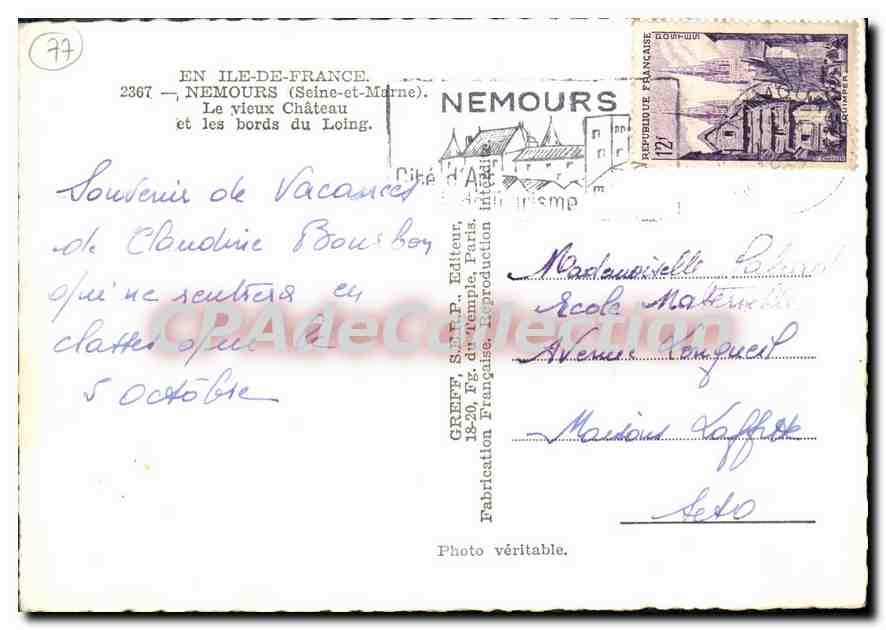 77
EN ILE-DE-FRANCE.
2367 — NEMOURS (Seine-et-Marne).
Le vieux Château
et les bords du Loing.
NEMOURS
Cité d'Art
de Tourisme
RÉPUBLIQUE FRANÇAISE
POSTES
12f
QUIMPER
Souvenir de Vacances
de Claudine Bourbon
qui ne rentrera en
classes que le
5 octobre
GREFF, S.E.R.P., Editeur,
18-20, Fg. du Temple, Paris.
Fabrication Française, Reproduction interdite
Mademoiselle
Ecole Maternelle
Avenue Longueil
Maisons Laffitte
Seto
Photo véritable.
CPAdeCollection